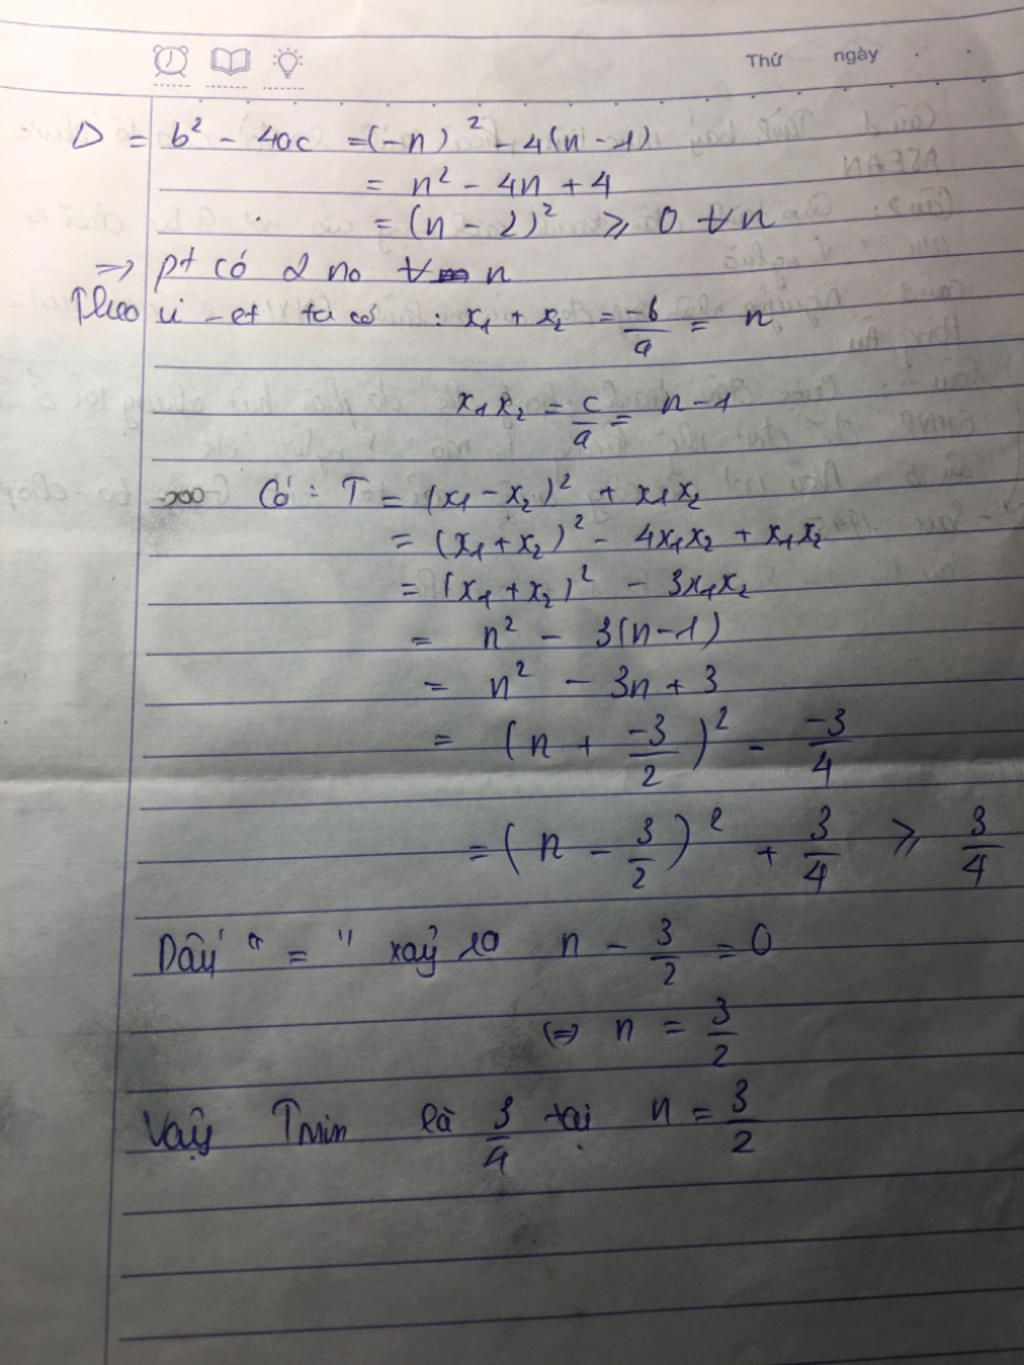 Thứ ngày
Δ = b² - 4ac = (-n)² - 4(n-1)
= n² - 4n + 4
= (n - 2)² ⩾ 0 ∀n
=> pt có 2 no ∀ n
Theo vi-et ta có : x₁ + x₂ = -b/a = n
x₁x₂ = c/a = n - 1
Có : T = (x₁ - x₂)² + x₁x₂
= (x₁ + x₂)² - 4x₁x₂ + x₁x₂
= (x₁ + x₂)² - 3x₁x₂
= n² - 3(n-1)
= n² - 3n + 3
= (n + -3/2)² - -3/4
= (n - 3/2)² + 3/4 ⩾ 3/4
Dấu " = " xảy ra n - 3/2 = 0
(=) n = 3/2
Vậy Tmin là 3/4 tại n = 3/2